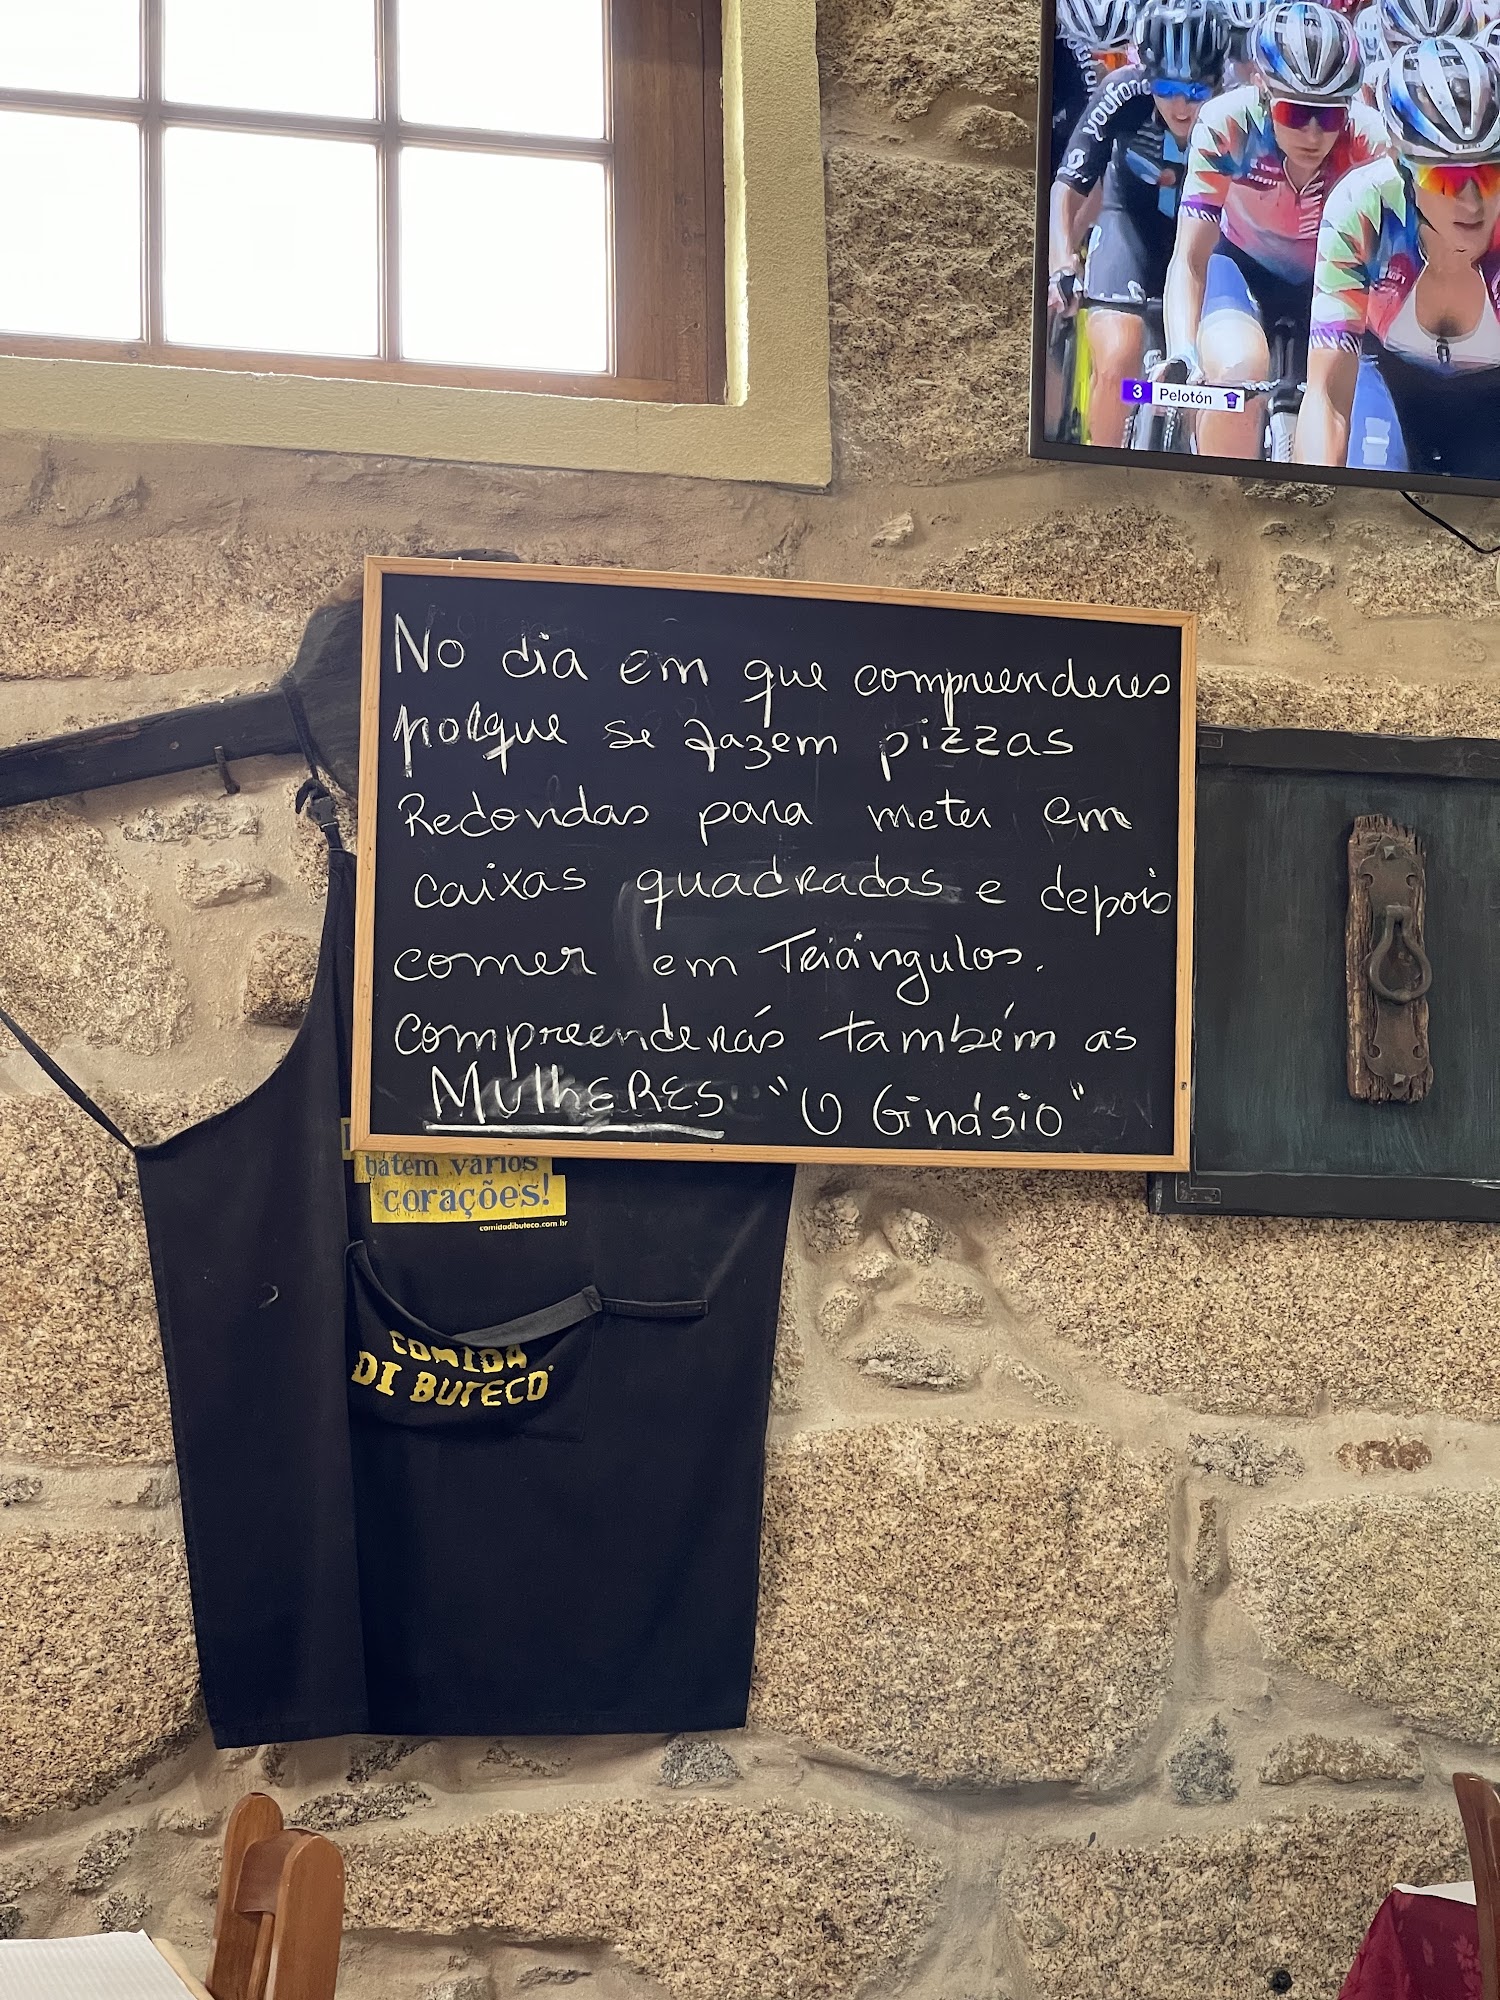 3 Pelotón
No dia em que compreenderes
porque se fazem pizzas
Redondas para meter em
caixas quadradas e depois
comer em Triângulos.
Compreenderás também as
MulhEREs "O Ginásio"
batem vários
corações!
comidadibuteco.com.br
COMIDA
DI BUTECO